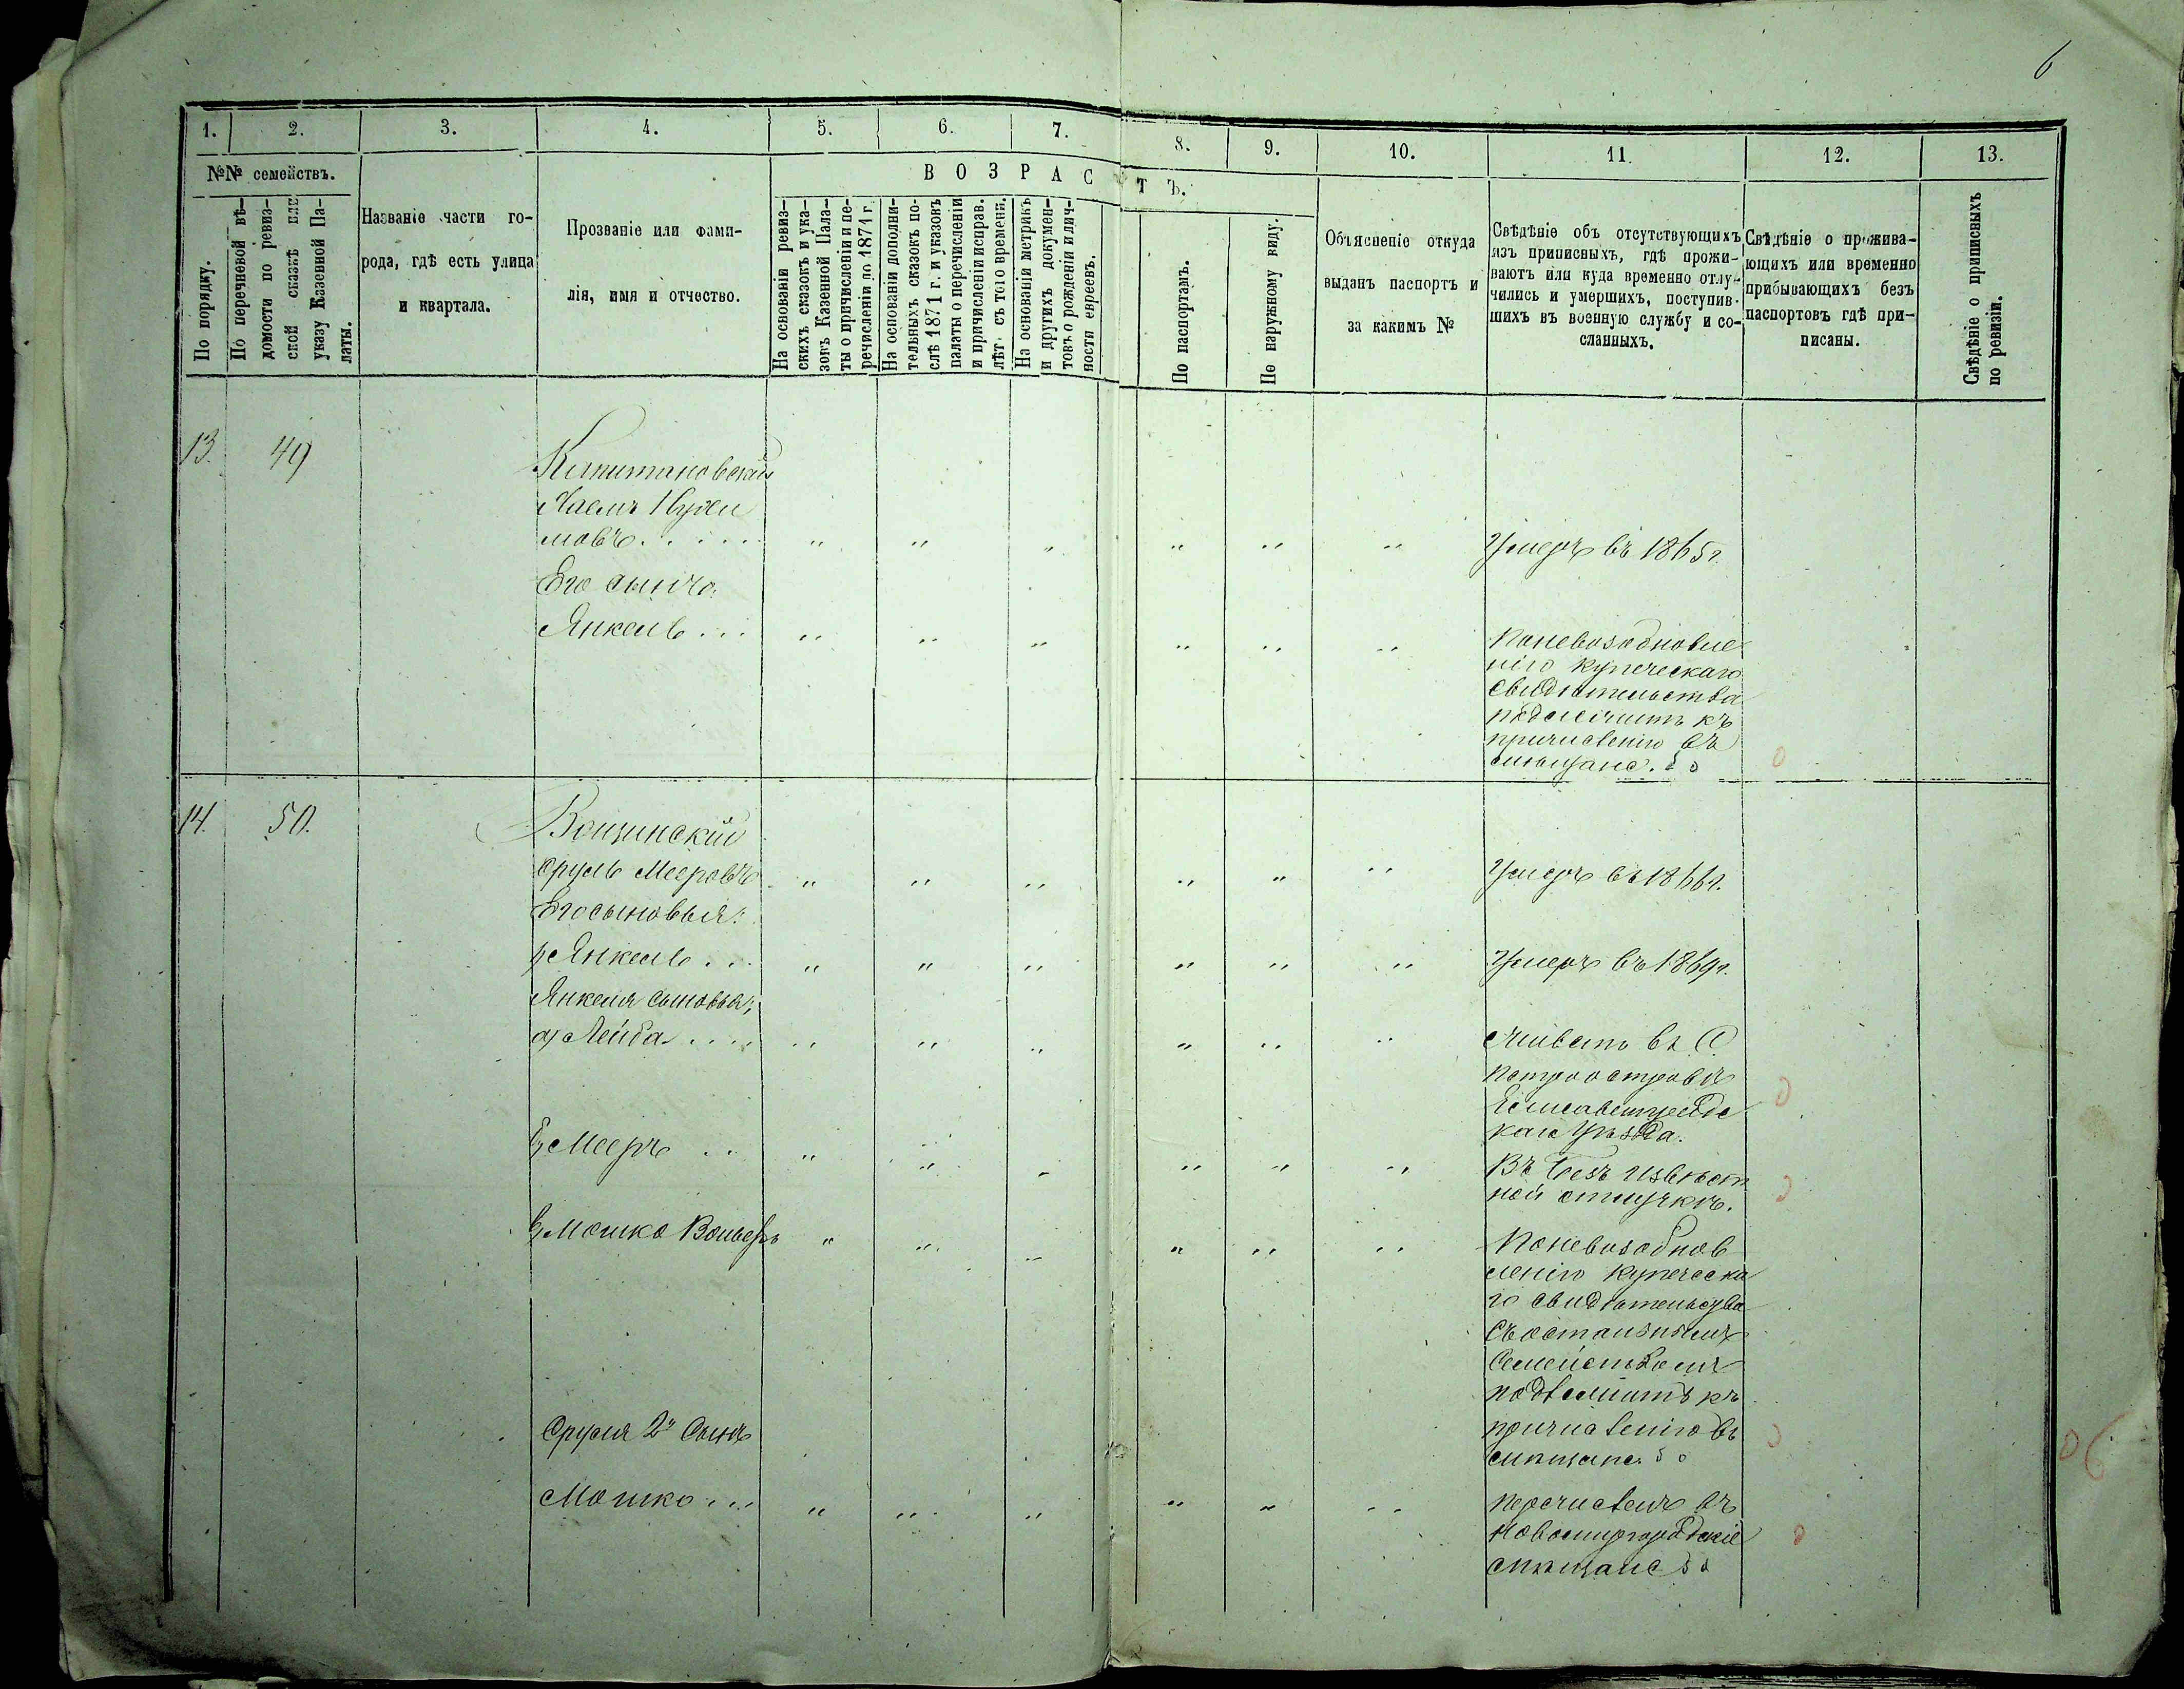 6
1. 2. 3. 4. 5. 6. 7. 8. 9. 10. 11. 12. 13.
№№ семействъ.
ВОЗРАСТЪ.
По порядку.
По перечневой вѣ-
домости по ревиз-
ской сказкѣ или
указу Казенной Па-
латы.
Названіе части го-
рода, гдѣ есть улица
и квартала.
Прозваніе или фами-
лія, имя и отчество.
На основаніи ревиз-
скихъ сказокъ и ука-
зовъ Казенной Пала-
ты о причисленіи и пе-
речисленіи до 1871 г.
На основаніи дополни-
тельныхъ сказокъ по-
слѣ 1871 г. и указовъ
палаты о перечисленіи
и причисленіи исправ.
лѣт. съ того времени.
На основаніи метрикъ
и другихъ докумен-
товъ о рожденіи и лич-
ности евреевъ.
По паспортамъ.
По наружному виду.
Объясненіе откуда
выданъ паспортъ и
за какимъ №
Свѣдѣніе объ отсутствующихъ
изъ приписныхъ, гдѣ прожи-
ваютъ или куда временно отлу-
чились и умершихъ, поступив-
шихъ въ военную службу и со-
сланныхъ.
Свѣдѣніе о прожива-
ющихъ или временно
прибывающихъ безъ
паспортовъ гдѣ при-
писаны.
Свѣдѣніе о приписныхъ
по ревизіи.
13. 49
Капитановскій
Хаимъ Нухи
мовъ . . . . . " " " " " " Умеръ въ 1865 г.
Его сынъ
Янкель . . . " " " " " " Поневозобновле
нію купеческаго
свидѣтельства
подлежитъ къ
причисленію въ
мѣщане.
14. 50.
Вощинскій
Сруль Мееровъ " " " " " " Умеръ въ 1866 г.
Его сыновья:
1) Янкель . . . " " " " " " Умеръ въ 1869 г.
Янкеля сыновья:
а) Лейба . . . . " " " " " " Живетъ въ С.
Петроостровѣ
Елисаветградс
каго Уѣзда.
б) Мееръ . . " " " " " " Въ безъ извѣст
ной отлучкѣ.
в) Мошко Вольфъ " " " " " " Поневозобнов
ленію купеческа
го свидѣтельства
съ остальнымъ
семействомъ
подлежитъ къ
причисленію въ
мѣщане.
Сруля 2й Сынъ
Мошко . . . " " " " " " Перечисленъ въ
Новомиргородскіе
мѣщане